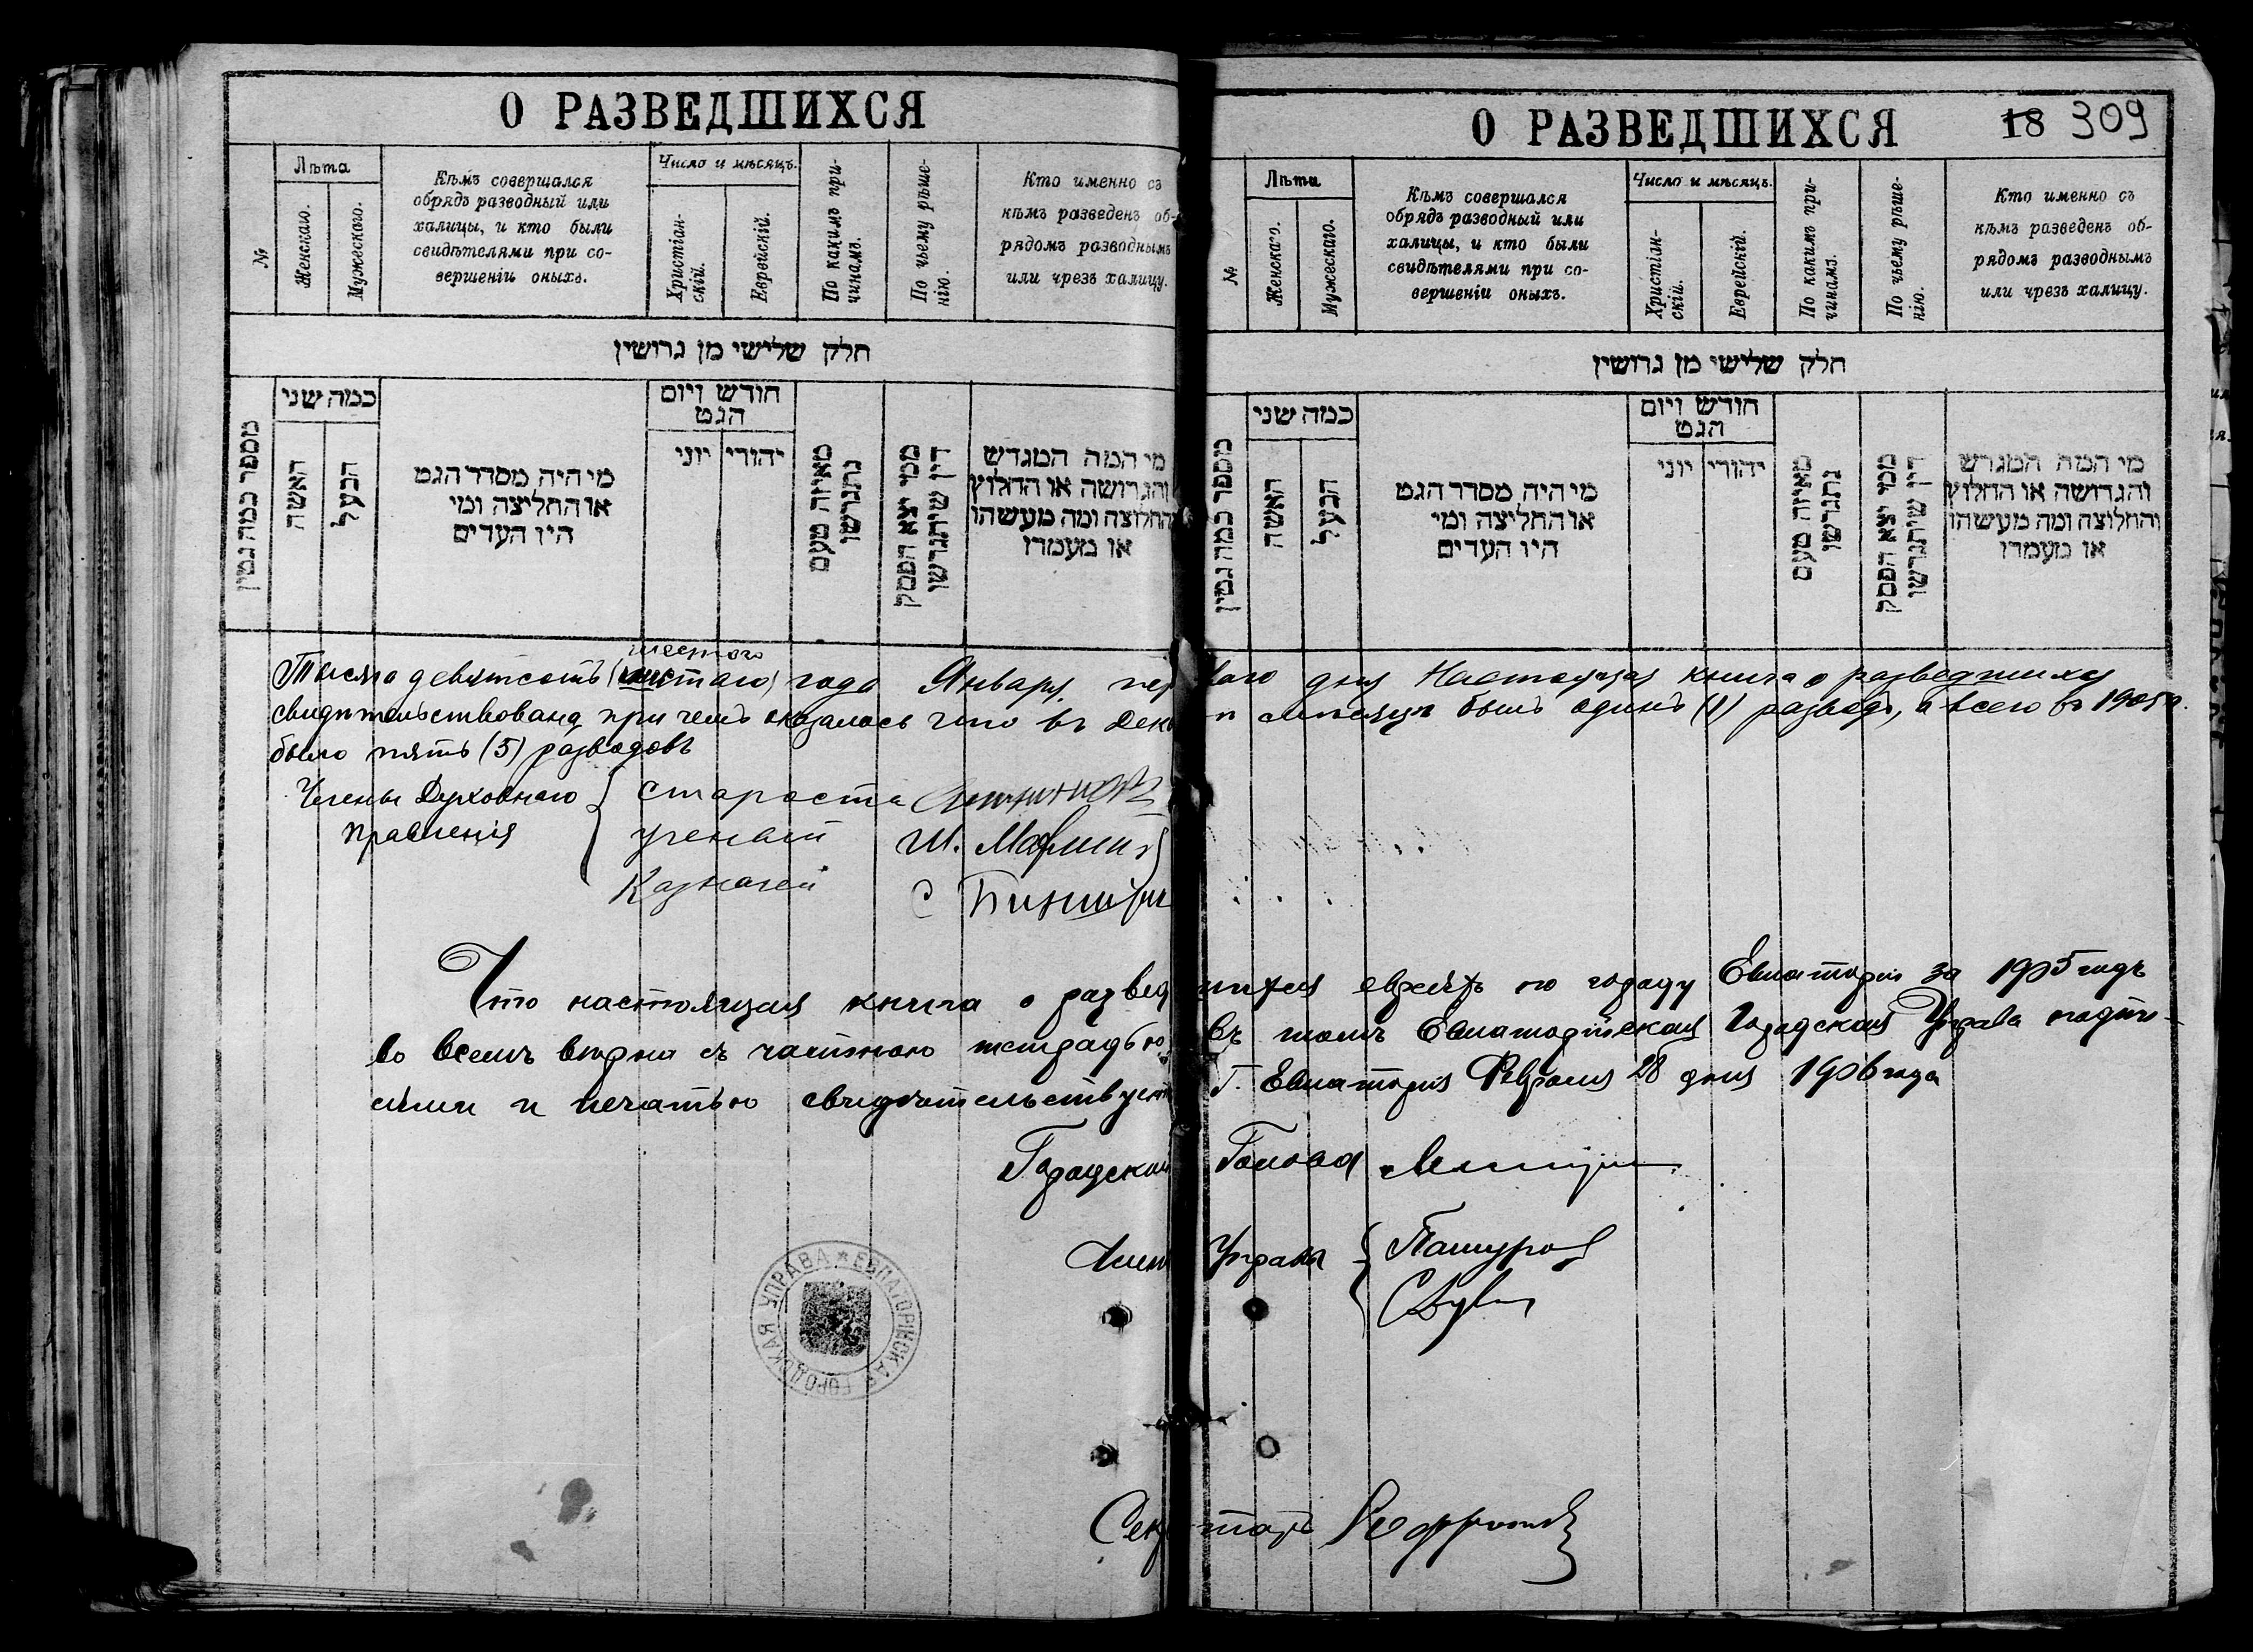 О РАЗВЕДШИХСЯ
№
Лѣта
Женскаго.
Мужескаго.
Кѣмъ совершался
обрядъ разводный или
халицы, и кто были
свидѣтелями при со-
вершеніи оныхъ.
Число и мѣсяцъ.
Христіан-
скій.
Еврейскій.
По какимъ при-
чинамъ.
По чьему рѣше-
нію.
Кто именно съ
кѣмъ разведенъ об-
рядомъ разводнымъ
или чрезъ халицу.
חלק שלישי מן גרושין
מספר כמה גטין
כמה שני
האשה
הבעל
מי היה מסדר הגט
או החליצה ומי
היו העדים
חודש ויום
הגט
יהודי יוני
מאיזה טעם
נתגרשו
ממי יצא הפסק
דין שיתגרשו
מי המה המגרש
והגרושה או החלוץ
והחלוצה ומה מעשהו
או מעמדו
О РАЗВЕДШИХСЯ
18 309
№
Лѣта
Женскаго.
Мужескаго.
Кѣмъ совершался
обрядъ разводный или
халицы, и кто были
свидѣтелями при со-
вершеніи оныхъ.
Число и мѣсяцъ.
Христіан-
скій.
Еврейскій.
По какимъ при-
чинамъ.
По чьему рѣше-
нію.
Кто именно съ
кѣмъ разведенъ об-
рядомъ разводнымъ
или чрезъ халицу.
חלק שלישי מן גרושין
מספר כמה גטין
כמה שני
האשה
הבעל
מי היה מסדר הגט
או החליצה ומי
היו העדים
חודש ויום
הגט
יהודי יוני
מאיזה טעם
נתגרשו
ממי יצא הפסק
דין שיתגרשו
מי המה המגרש
והגרושה או החלוץ
והחלוצה ומה מעשהו
או מעמדו
шестого
Тысяча девятсотъ года Января перваго дня Настоящая книга о разведшихся
свидѣтельствована при чемъ оказалось что въ Дек мѣсяцѣ былъ одинъ (1) разводъ, а всего въ 1905 г.
было пять (5) разводовъ
Члены Духовнаго Правленія
Староста
ученый Ш.
Казначей С
Что настоящая книга о разведшихся евреяхъ по городу Евпаторіи за 1905 годъ
во всемъ вѣрна съ частною тетрадью, въ томъ Евпаторійская Городская Управа подпи-
сями и печатью свидѣтельствуетъ Г. Евпаторія Февраля 28 дня 1906 года
Городской Голова
Члены Управы
Пашуров
СДуван
ЕВПАТОРІЙСКАЯ ГОРОДСКАЯ УПРАВА
Секретарь